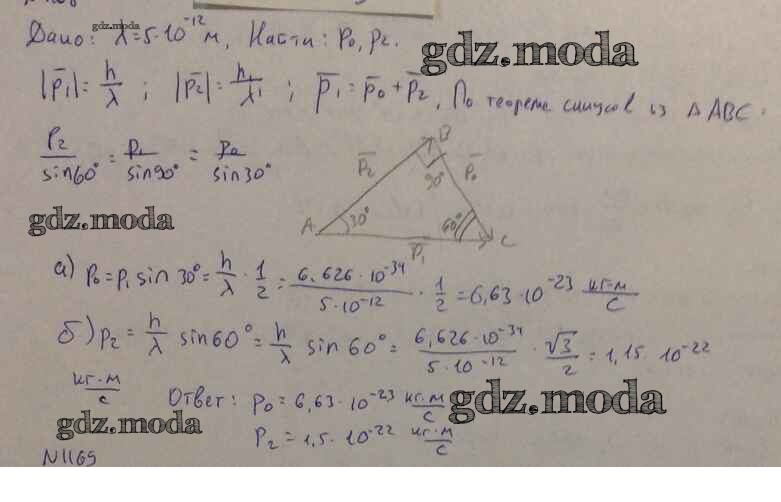 gdz.moda
Дано: λ=5·10⁻¹² м, Найти: p₀, p₂.
gdz.moda
|p̅₁|=h/λ ; |p̅₂|=h/λ' ; p̅₁=p̅₀+p̅₂, По теореме синусов из Δ ABC:
p₂/sin60° = p₁/sin90° = p₀/sin30°
B
p̅₂ 90° p̅₀
gdz.moda
A 30° 60° C
p̅₁
а) p₀=p₁ sin 30°= h/λ · 1/2 = 6,626·10⁻³⁴/5·10⁻¹² · 1/2 = 6,63·10⁻²³ кг·м/с
б) p₂= h/λ sin60°= h/λ sin 60°= 6,626·10⁻³⁴/5·10⁻¹² · √3/2 = 1,15·10⁻²²
кг·м/с
Ответ: p₀=6,63·10⁻²³ кг·м/с
gdz.moda
gdz.moda
p₂=1,5·10⁻²² кг·м/с
N1169